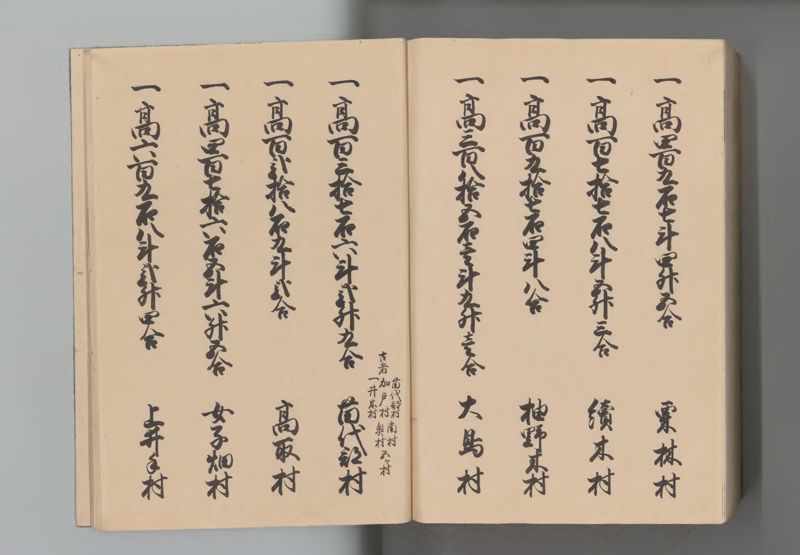 一高四百九石七斗四升五合 栗林村
一高百七拾七石八斗五升三合 續木村
一高百九拾七石四斗八合 柚野木村
一高三百八拾五石壱斗九升壱合 大鳥村
苗代部村 南村
古者 加戸村 五ヶ村
一井木村 奥村
一高百三拾七石六斗弐升九合 苗代部村
一高百弐拾八石九斗弐合 高取村
一高四百七拾六石五斗六升五合 女子畑村
一高六百九石八斗弐升四合 上井手村